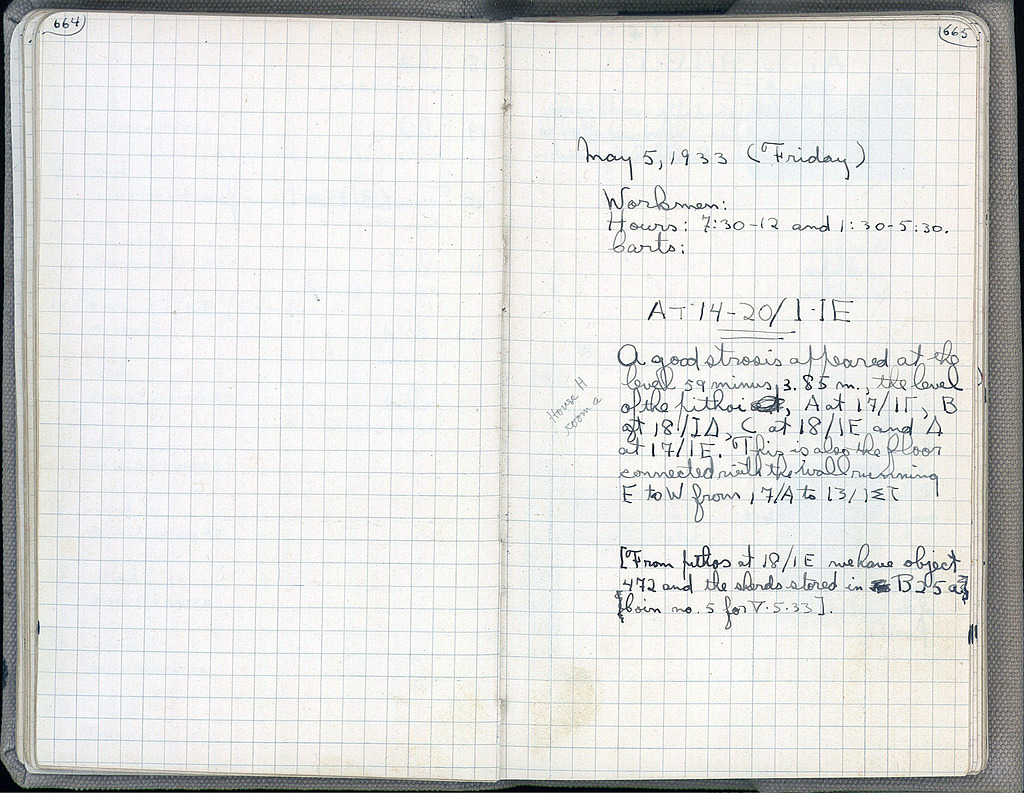 664
665
May 5, 1933 (Friday)
Workmen:
Hours: 7:30-12 and 1:30-5:30.
Carts:
AT 14-20/I-IE
A good strosis appeared at the
level 59 minus 3.85 m., the level
of the pithoi, A at 17/IΓ, B
at 18/IΔ, C at 18/IE and Δ
at 17/IE. This is also the floor
connected with the wall running
E to W from 17/A to 13/
House H
room 2
[From pithos at 18/IE we have object
472 and the sherds stored in B25a]
[Coin no. 5 for V.5.33].